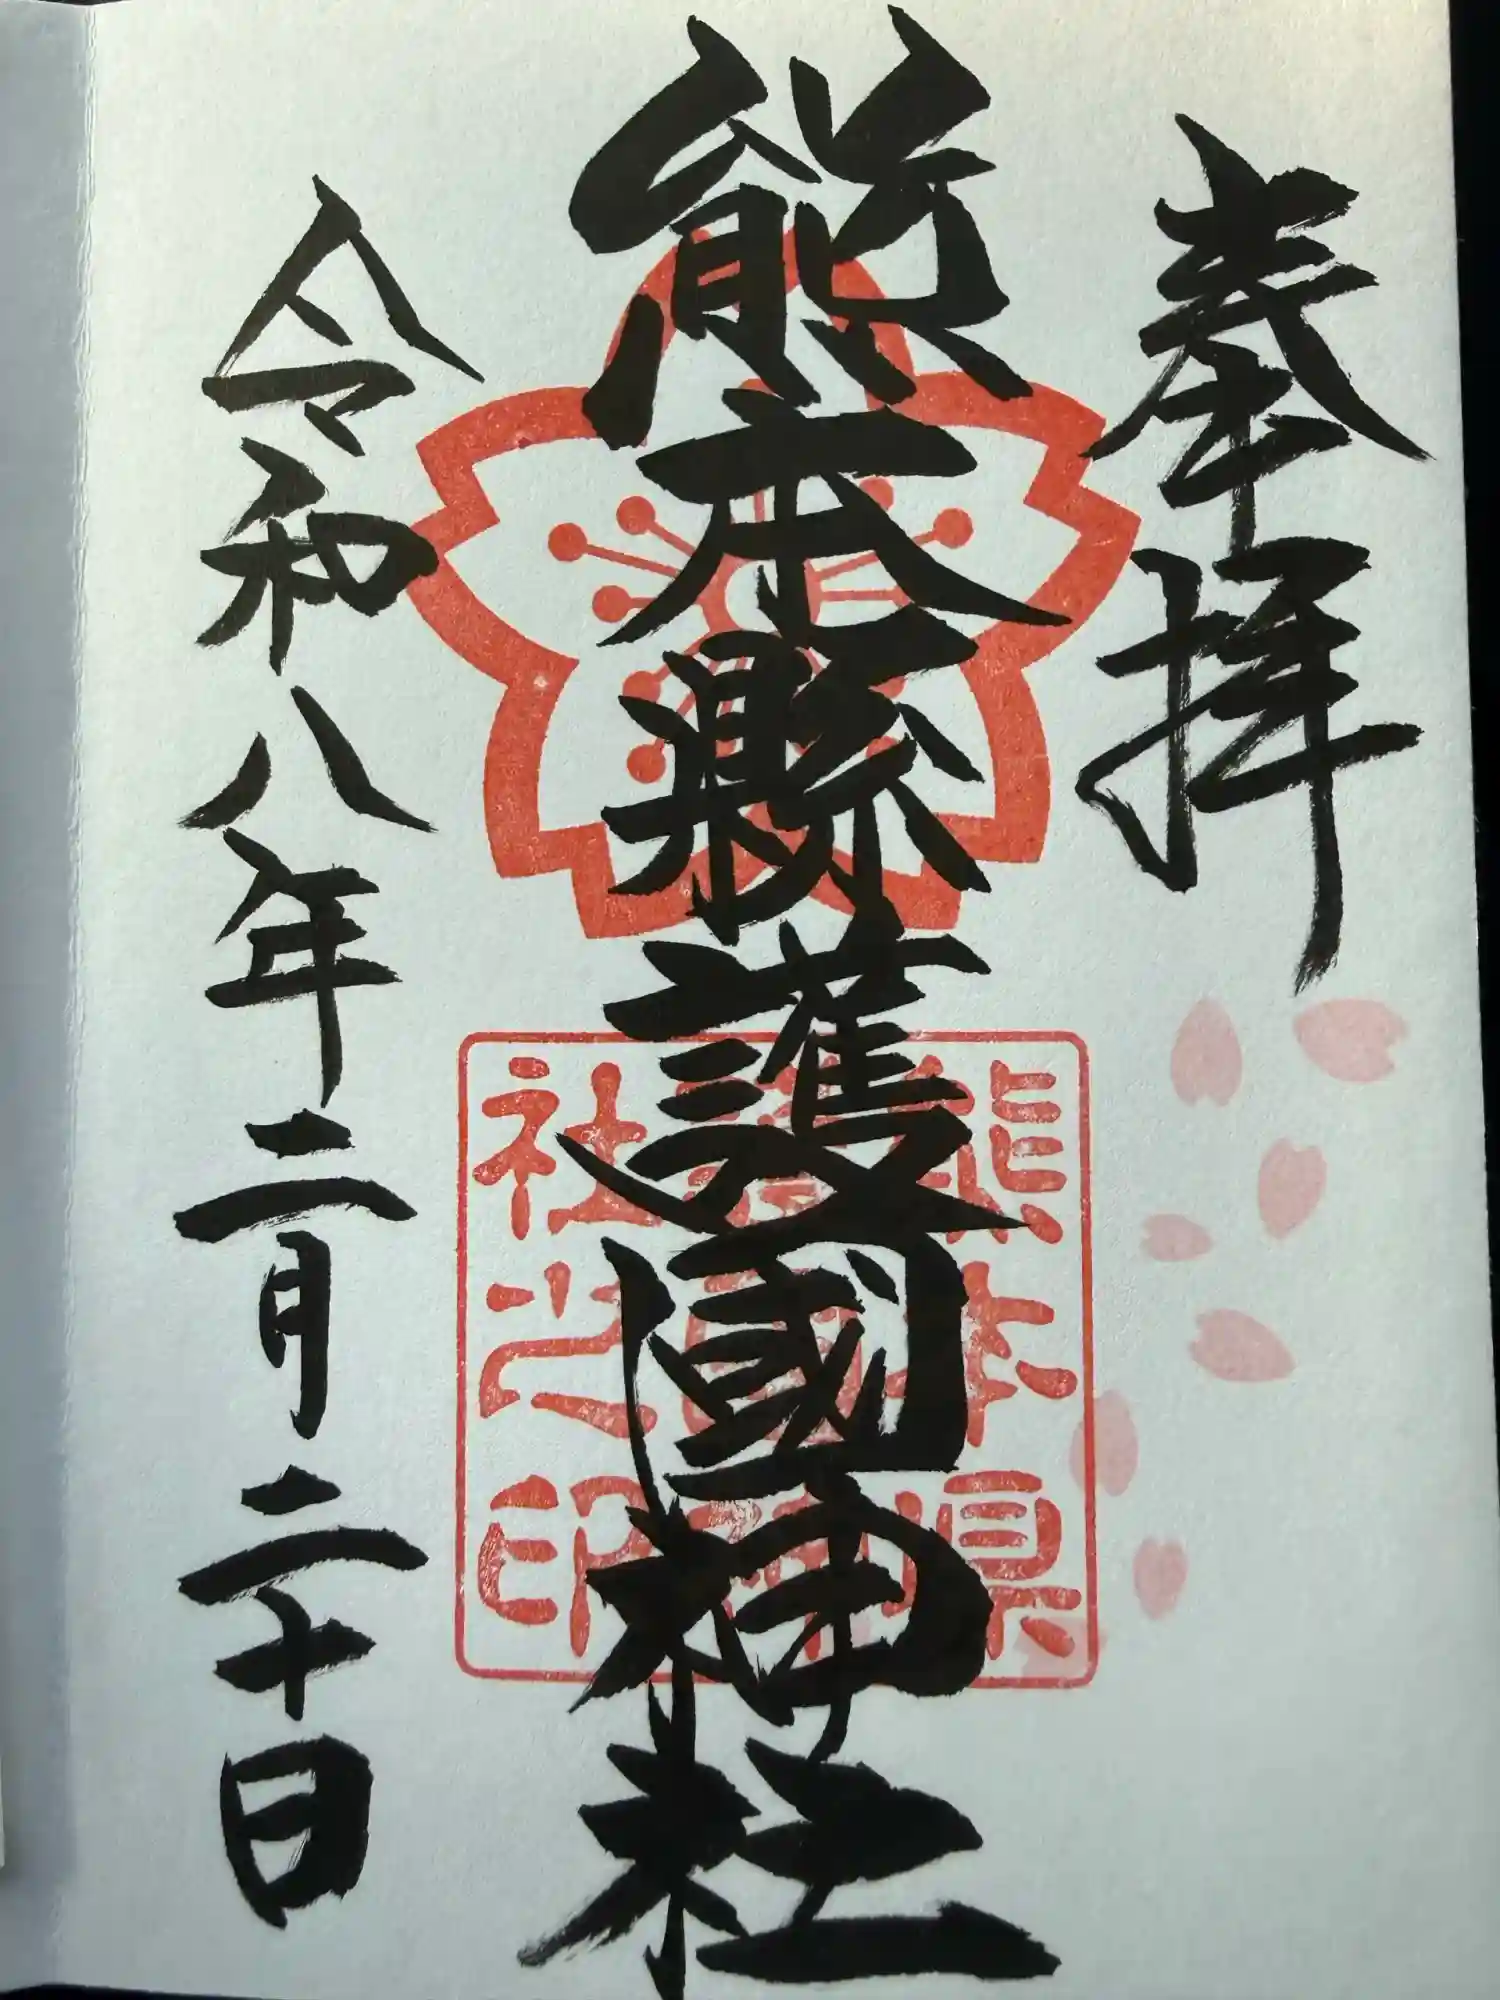 奉拝
熊本縣護國神社
令和八年二月二十日
熊本県
護国神
社之印